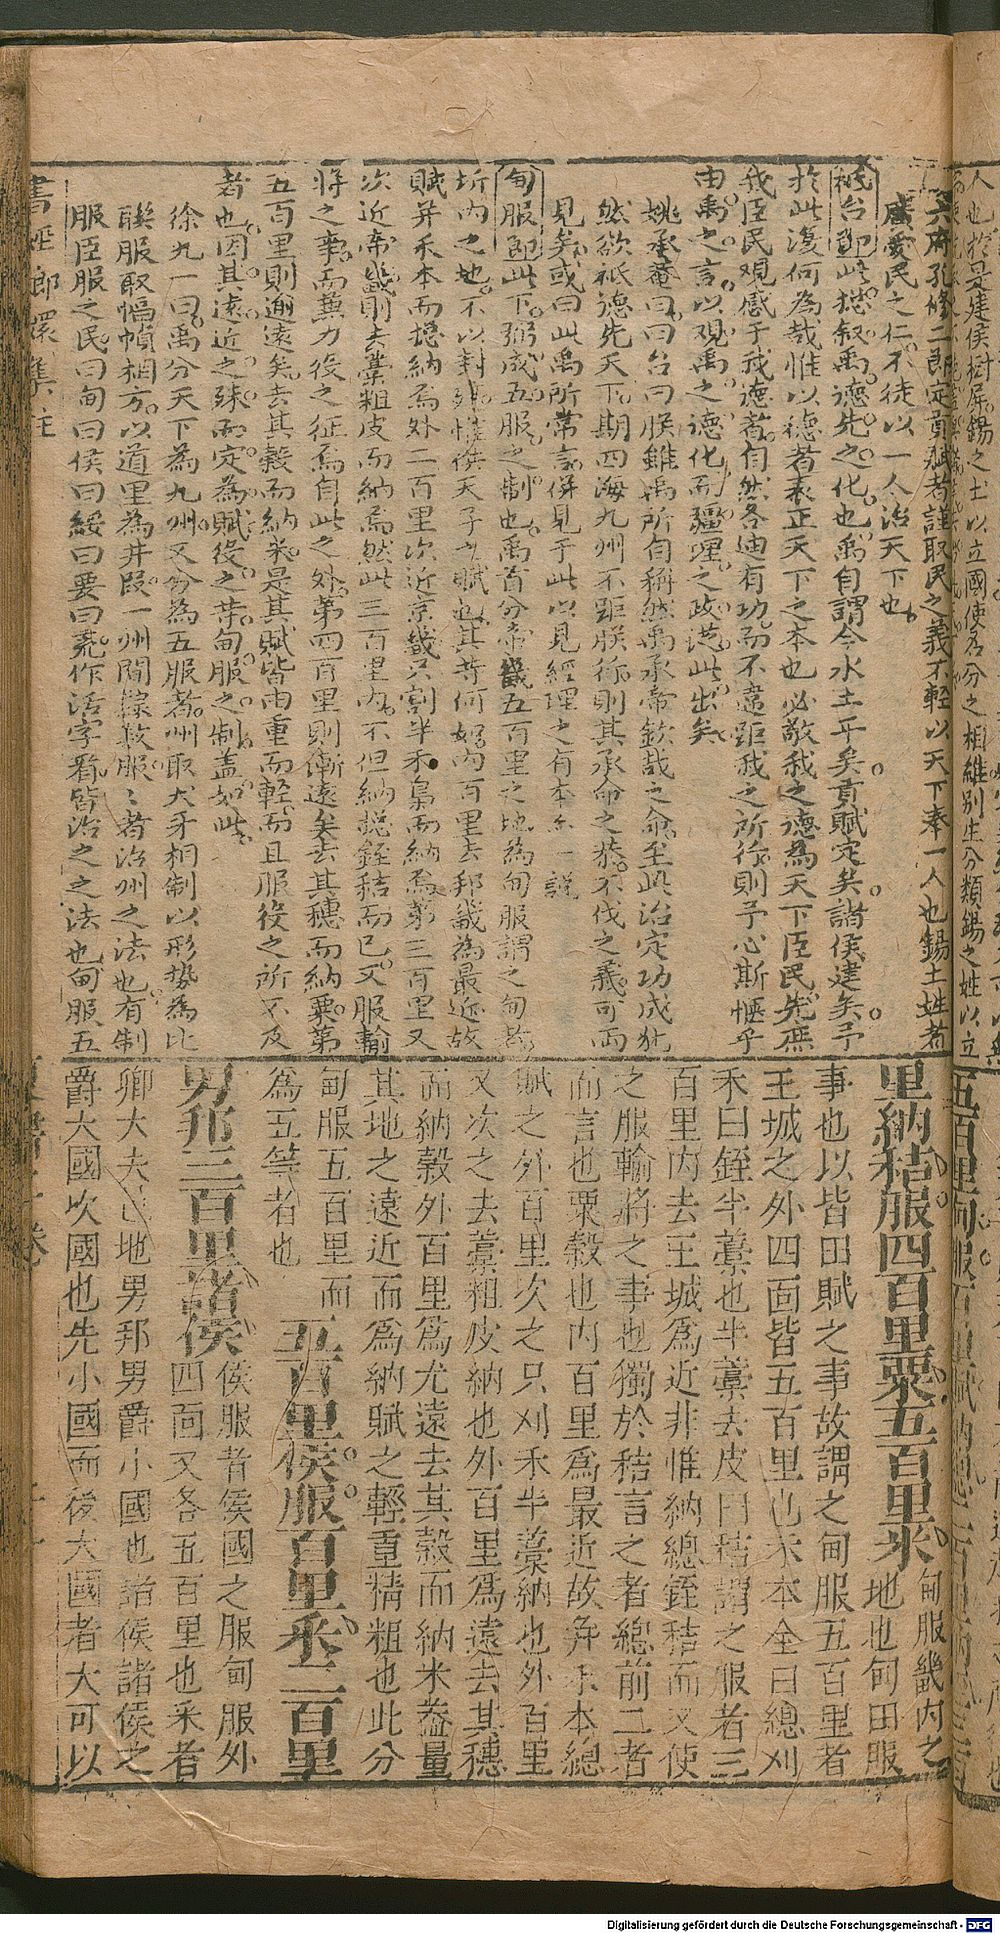 其府孔修二郎定貢賦者謹取民之義不輕以天下奉一人也錫土姓者
廣愛民之仁不徒以一人治天下也
祇台節此揔叙禹德先之化也禹自謂今水土平矣貢賦定矣諸侯建矣予
於此復何為哉惟以德者表正天下之本也必敬我之德為天下臣民先庶
我臣民觀感于我德者自然各迪有功而不違距我之所行則予心斯愜乎
由禹之言以觀禹之德化而疆理之政從此出矣
姚承菴曰曰台曰朕雖禹所自稱然禹承帝欽哉之命至此治定功成犹
然欲祇德先天下期四海九州不距朕行則其承命之恭不伐之義可両
見矣或曰此禹所常言併見于此以見經理之有本亦一說
甸服節此下弼成五服之制也禹首分帝畿五百里之地為甸服謂之甸者
圻内之地不以封外惟供天子之賦也其等何如内百里去邦畿為最近故
賦并禾本而揔納焉外二百里次近京畿只割半禾稾而納焉第三百里又
次近帝畿則去藁粗皮而納焉然此三百里内不但納総銍秸而已又服輸
將之事而兼力役之征焉自此之外第四百里則漸遠矣去其穗而納粟第
五百里則逾遠矣去其穀而納米是其賦皆由重而輕而且服役之所不及
者也因其遠近之殊而定為賦役之等甸服之制盖如此
徐九一曰禹分天下為九州又分為五服者州取犬牙相制以形勢為比
聯服取幅幀相方以道里為井叚一州間錯数服〻者治州之法也有制
服臣服之民曰甸曰侯曰綏曰要曰荒作活字看皆治之之法也甸服五
里納秸服四百里粟五百里米甸服畿内之
地也甸田服
事也以皆田賦之事故謂之甸服五百里者
王城之外四面皆五百里也禾本全曰總刈
禾曰銍半藁也半藁去皮曰秸謂之服者三
百里内去王城為近非惟納總銍秸而又使
之服輸將之事也獨於秸言之者總前二者
而言也粟穀也内百里爲最近故并禾本總
賦之外百里次之只刈禾半藁納也外百里
又次之去藁粗皮納也外百里爲遠去其穗
而納穀外百里爲尤遠去其穀而納米蓋量
其地之遠近而爲納賦之輕重精粗也此分
甸服五百里而
為五等者也
五百里侯服百里采二百里
男邦三百里諸侯侯服者侯國之服甸服外
四面又各五百里也采者
卿大夫邑地男邦男爵小國也諸侯諸侯之
爵大國次國也先小國而後大國者大可以
書經郎環集註
Digitalisierung gefördert durch die Deutsche Forschungsgemeinschaft - DFG